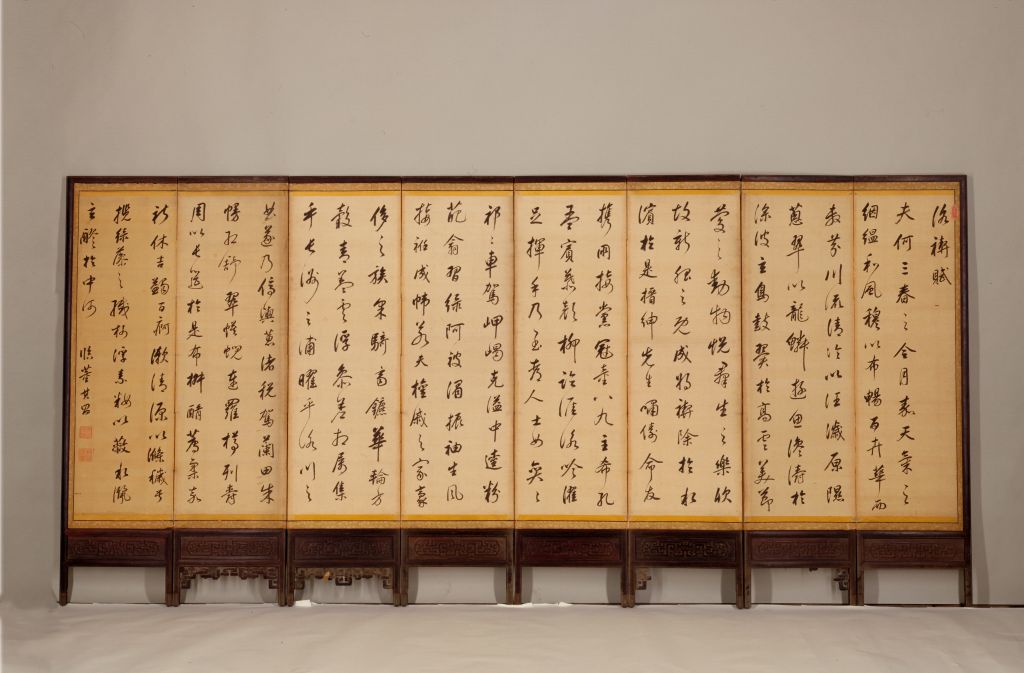 洛禊賦
夫何三春之令月嘉天氣之
絪縕和風穆以布暢百卉華而
敷芬川流清泠以汪濊原隰
蔥翠以龍鱗游魚瀺濤於
淥波玄鳥鼓翼於高雲美節
慶之動物悅羣生之樂欣
故新服之既成將禊除於水
濱於是搢紳先生嘯儔命友
攜朋接黨冠童八九主希孔
孟賓慕顏柳臨涯詠吟濯
足揮手乃至都人士女奕〻
祁〻車駕岬嵑充溢中逵粉
葩翕習緣阿被湄振袖生風
接衽成幃若夫權戚之家豪
侈之族采騎齊鑣華輪方
轂青蓋雲浮參差相屬集
乎長洲之浦曜乎洛川之
曲遂乃停輿蕙渚稅駕蘭田朱
幔虹舒翠幙蜺連羅樽列爵
周以長筵於是布椒醑薦柔嘉
祈休吉蠲百痾漱清源以滌穢兮
攬綠藻之纖柯浮素以蔽水灑
玄醪於中河
臨董其昌